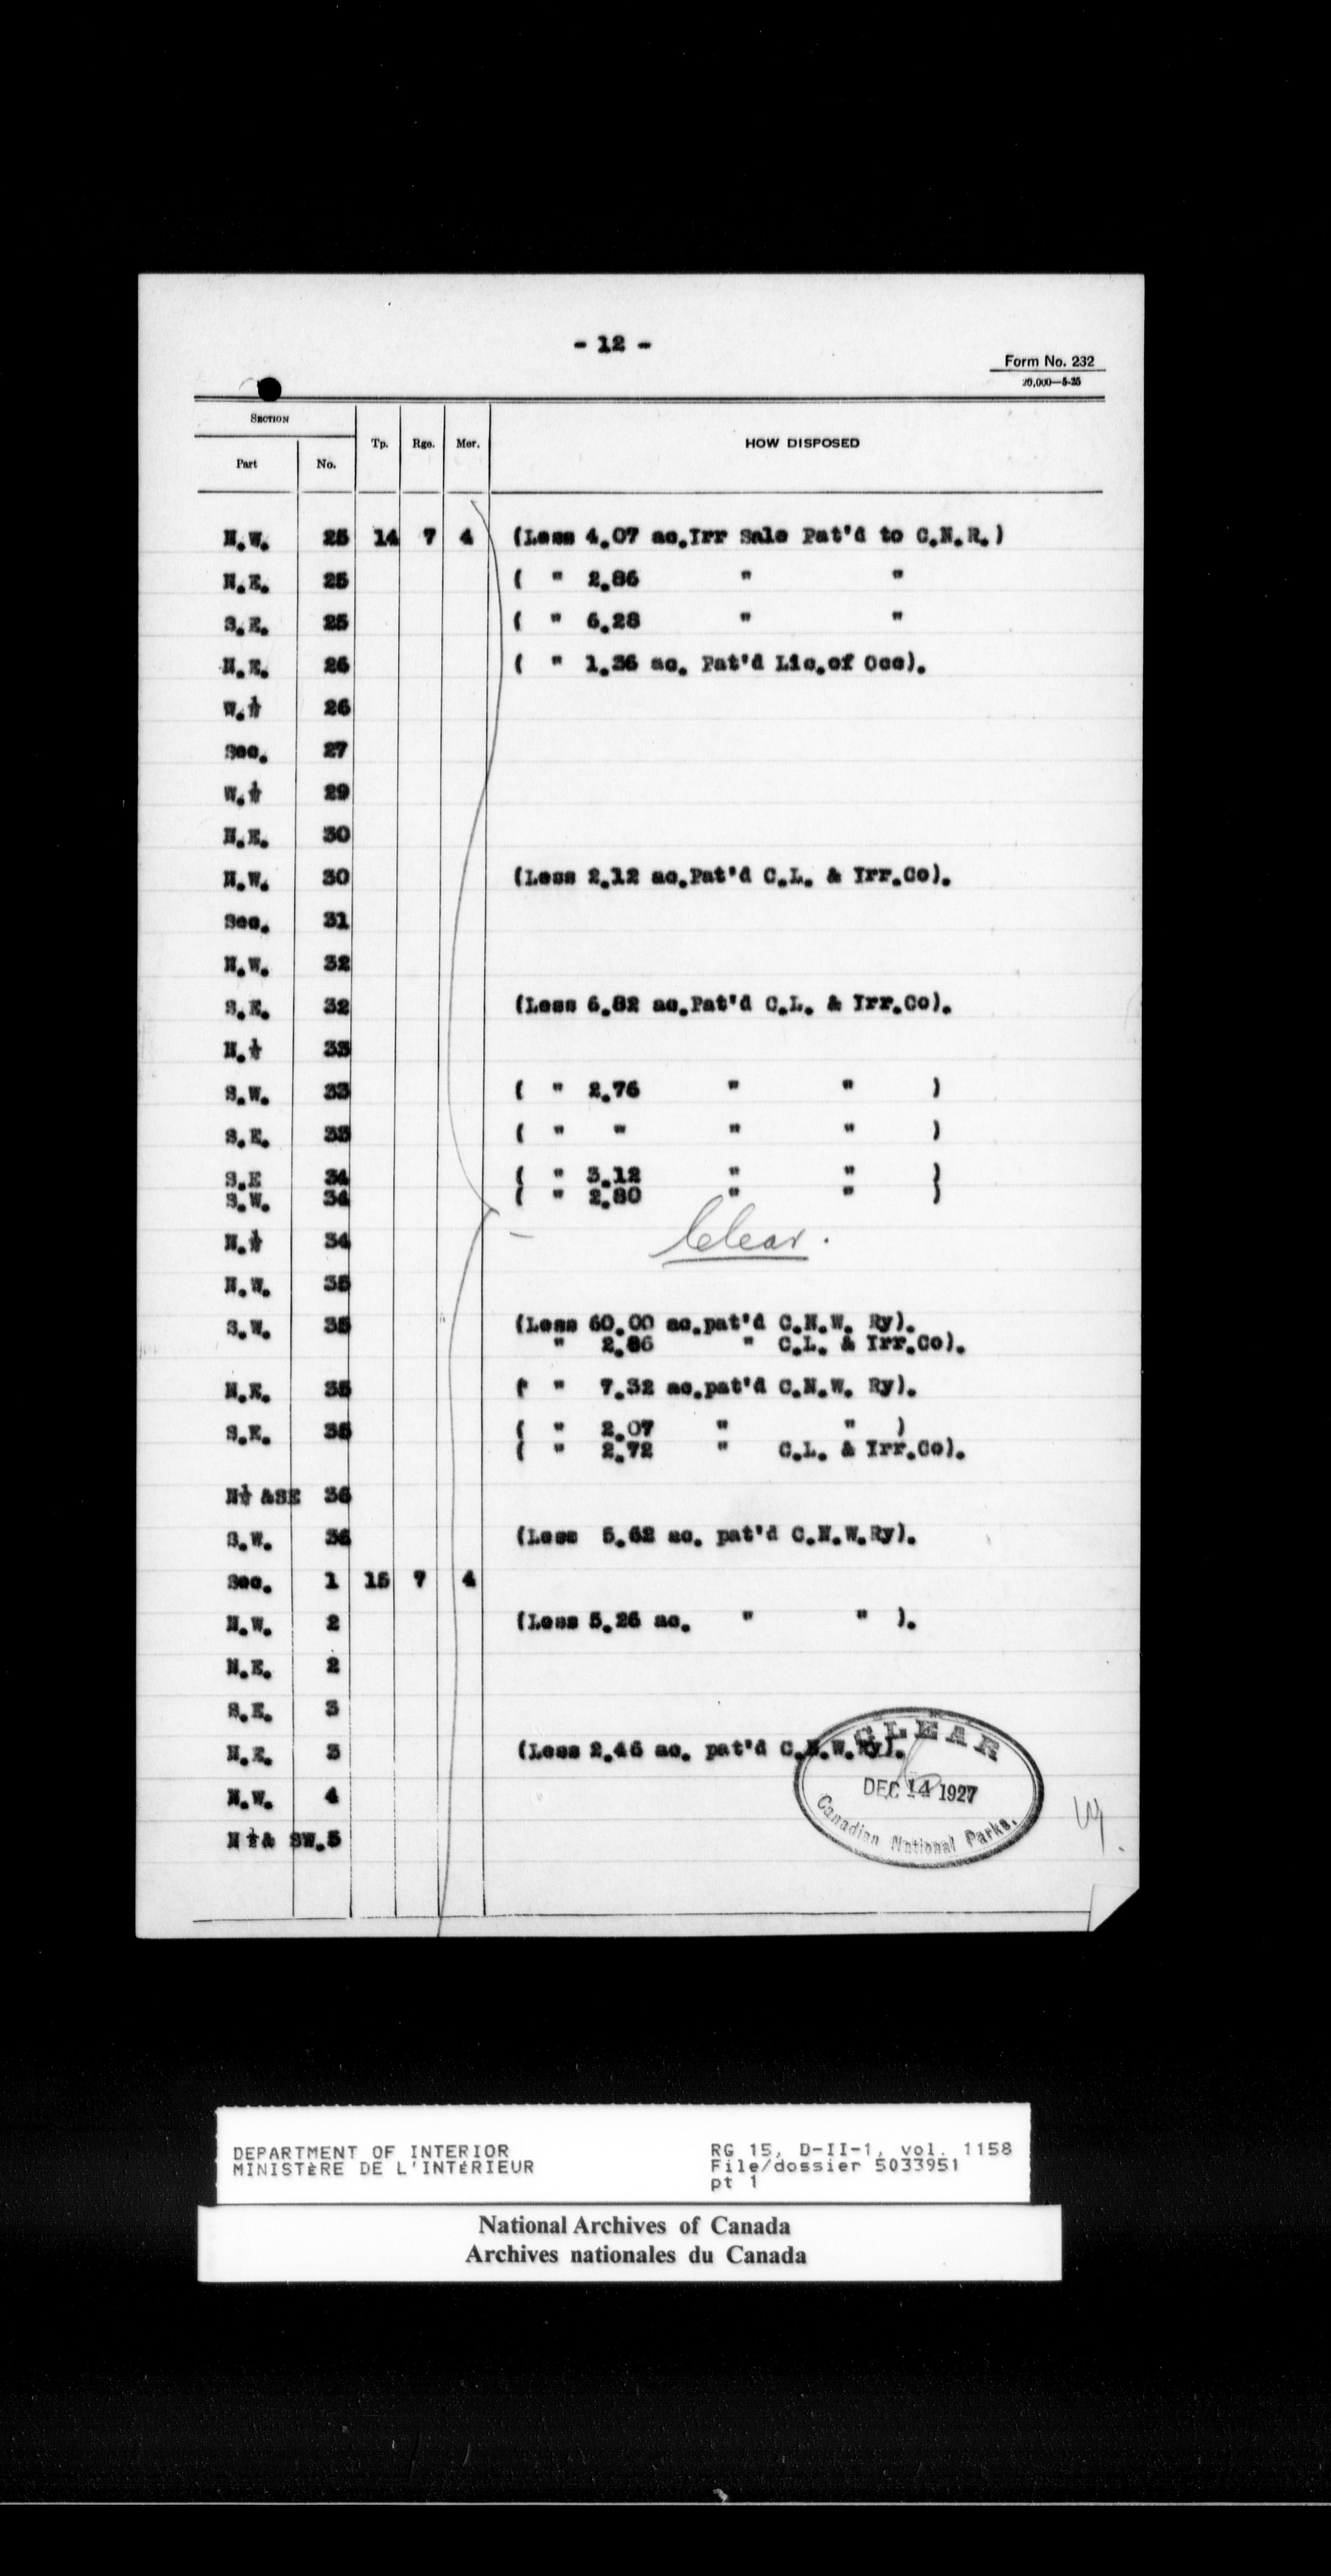 - 12 -
Form No. 232
20,000—5-25
SECTION
Part No. Tp. Rge. Mer. HOW DISPOSED
N.W. 25 14 7 4 (Less 4.07 ac.Irr Sale Pat'd to C.N.R.)
N.E. 25 ( " 2.86 " "
S.E. 25 ( " 6.28 " "
N.E. 26 ( " 1.36 ac. Pat'd Lic.of Occ).
W.½ 26
Sec. 27
W.½ 29
N.E. 30
N.W. 30 (Less 2.12 ac.Pat'd C.L. & Irr.Co).
Sec. 31
N.W. 32
S.E. 32 (Less 6.82 ac.Pat'd C.L. & Irr.Co).
N.½ 33
S.W. 33 ( " 2.76 " " )
S.E. 33 ( " " " " )
S.E 34 ( " 3.12 " " )
S.W. 34 ( " 2.80 " " )
Clear.
N.½ 34
N.W. 35
S.W. 35 (Less 60.00 ac.pat'd C.N.W. Ry).
" 2.86 " C.L. & Irr.Co).
N.E. 35 ( " 7.32 ac.pat'd C.N.W. Ry).
S.E. 35 ( " 2.07 " " )
( " 2.72 " C.L. & Irr.Co).
N½ &SE 36
S.W. 36 (Less 5.62 ac. pat'd C.N.W.Ry).
Sec. 1 15 7 4
N.W. 2 (Less 5.26 ac. " " ).
N.E. 2
S.E. 3
N.E. 3 (Less 2.46 ac. pat'd C.N.W.Ry).
N.W. 4
N ½& SW.5
CLEAR
DEC 14 1927
Canadian National Parks.
DEPARTMENT OF INTERIOR
MINISTÈRE DE L'INTÉRIEUR
RG 15, D-II-1, vol. 1158
File/dossier 5033951
pt 1
National Archives of Canada
Archives nationales du Canada